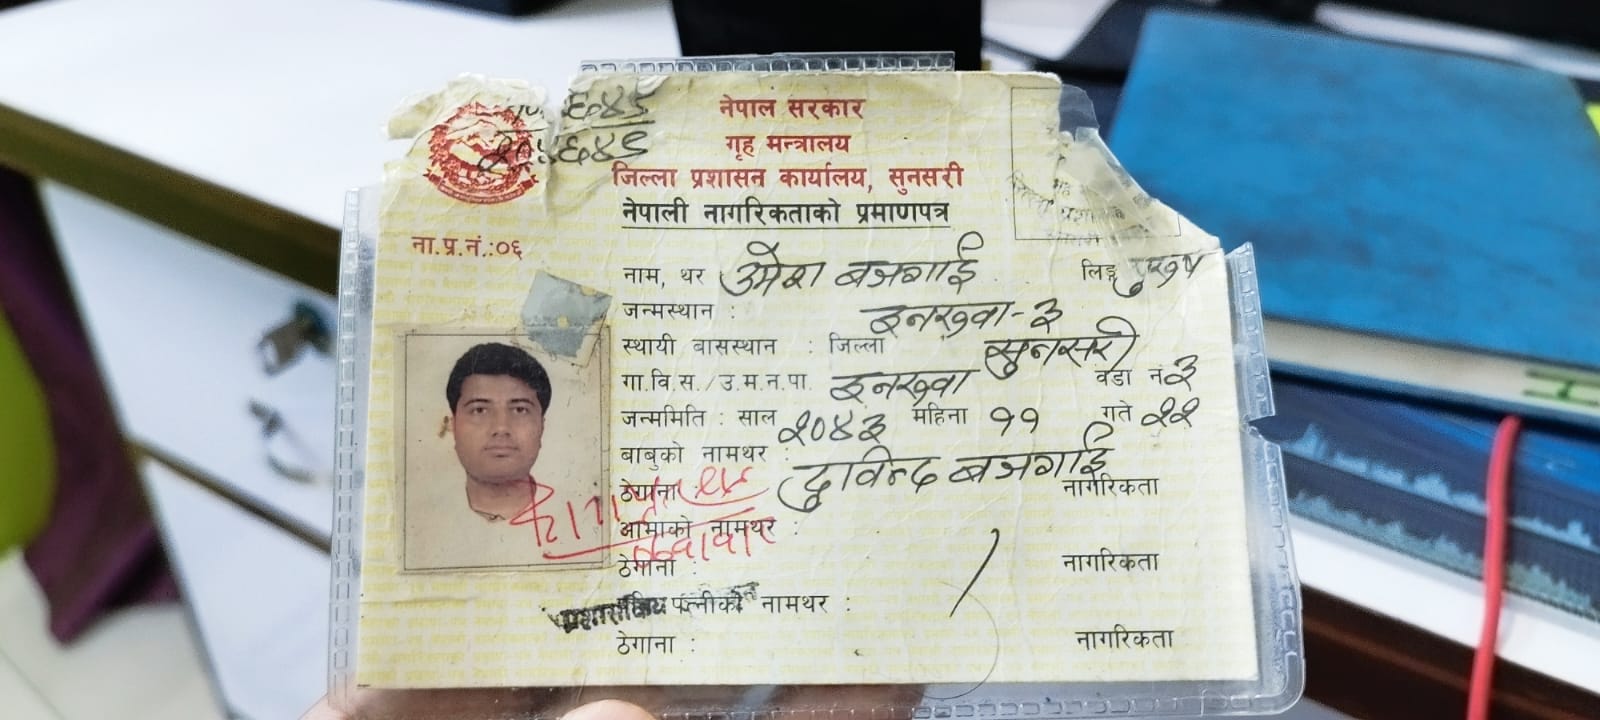 नेपाल सरकार
गृह मन्त्रालय
जिल्ला प्रशासन कार्यालय, सुनसरी
नेपाली नागरिकताको प्रमाणपत्र
ना.प्र.नं.:०६
नाम, थर उमेश बजगाई लिङ्ग पुरुष
जन्मस्थान : इनरुवा-३
स्थायी बासस्थान : जिल्ला सुनसरी
गा.वि.स./उ.म.न.पा. इनरुवा वडा नं ३
जन्ममिति : साल २०४३ महिना ११ गते २२
बाबुको नामथर : बजगाई
ठेगाना : नागरिकता
आमाको नामथर :
ठेगाना : नागरिकता
पत्नीको नामथर :
ठेगाना : नागरिकता